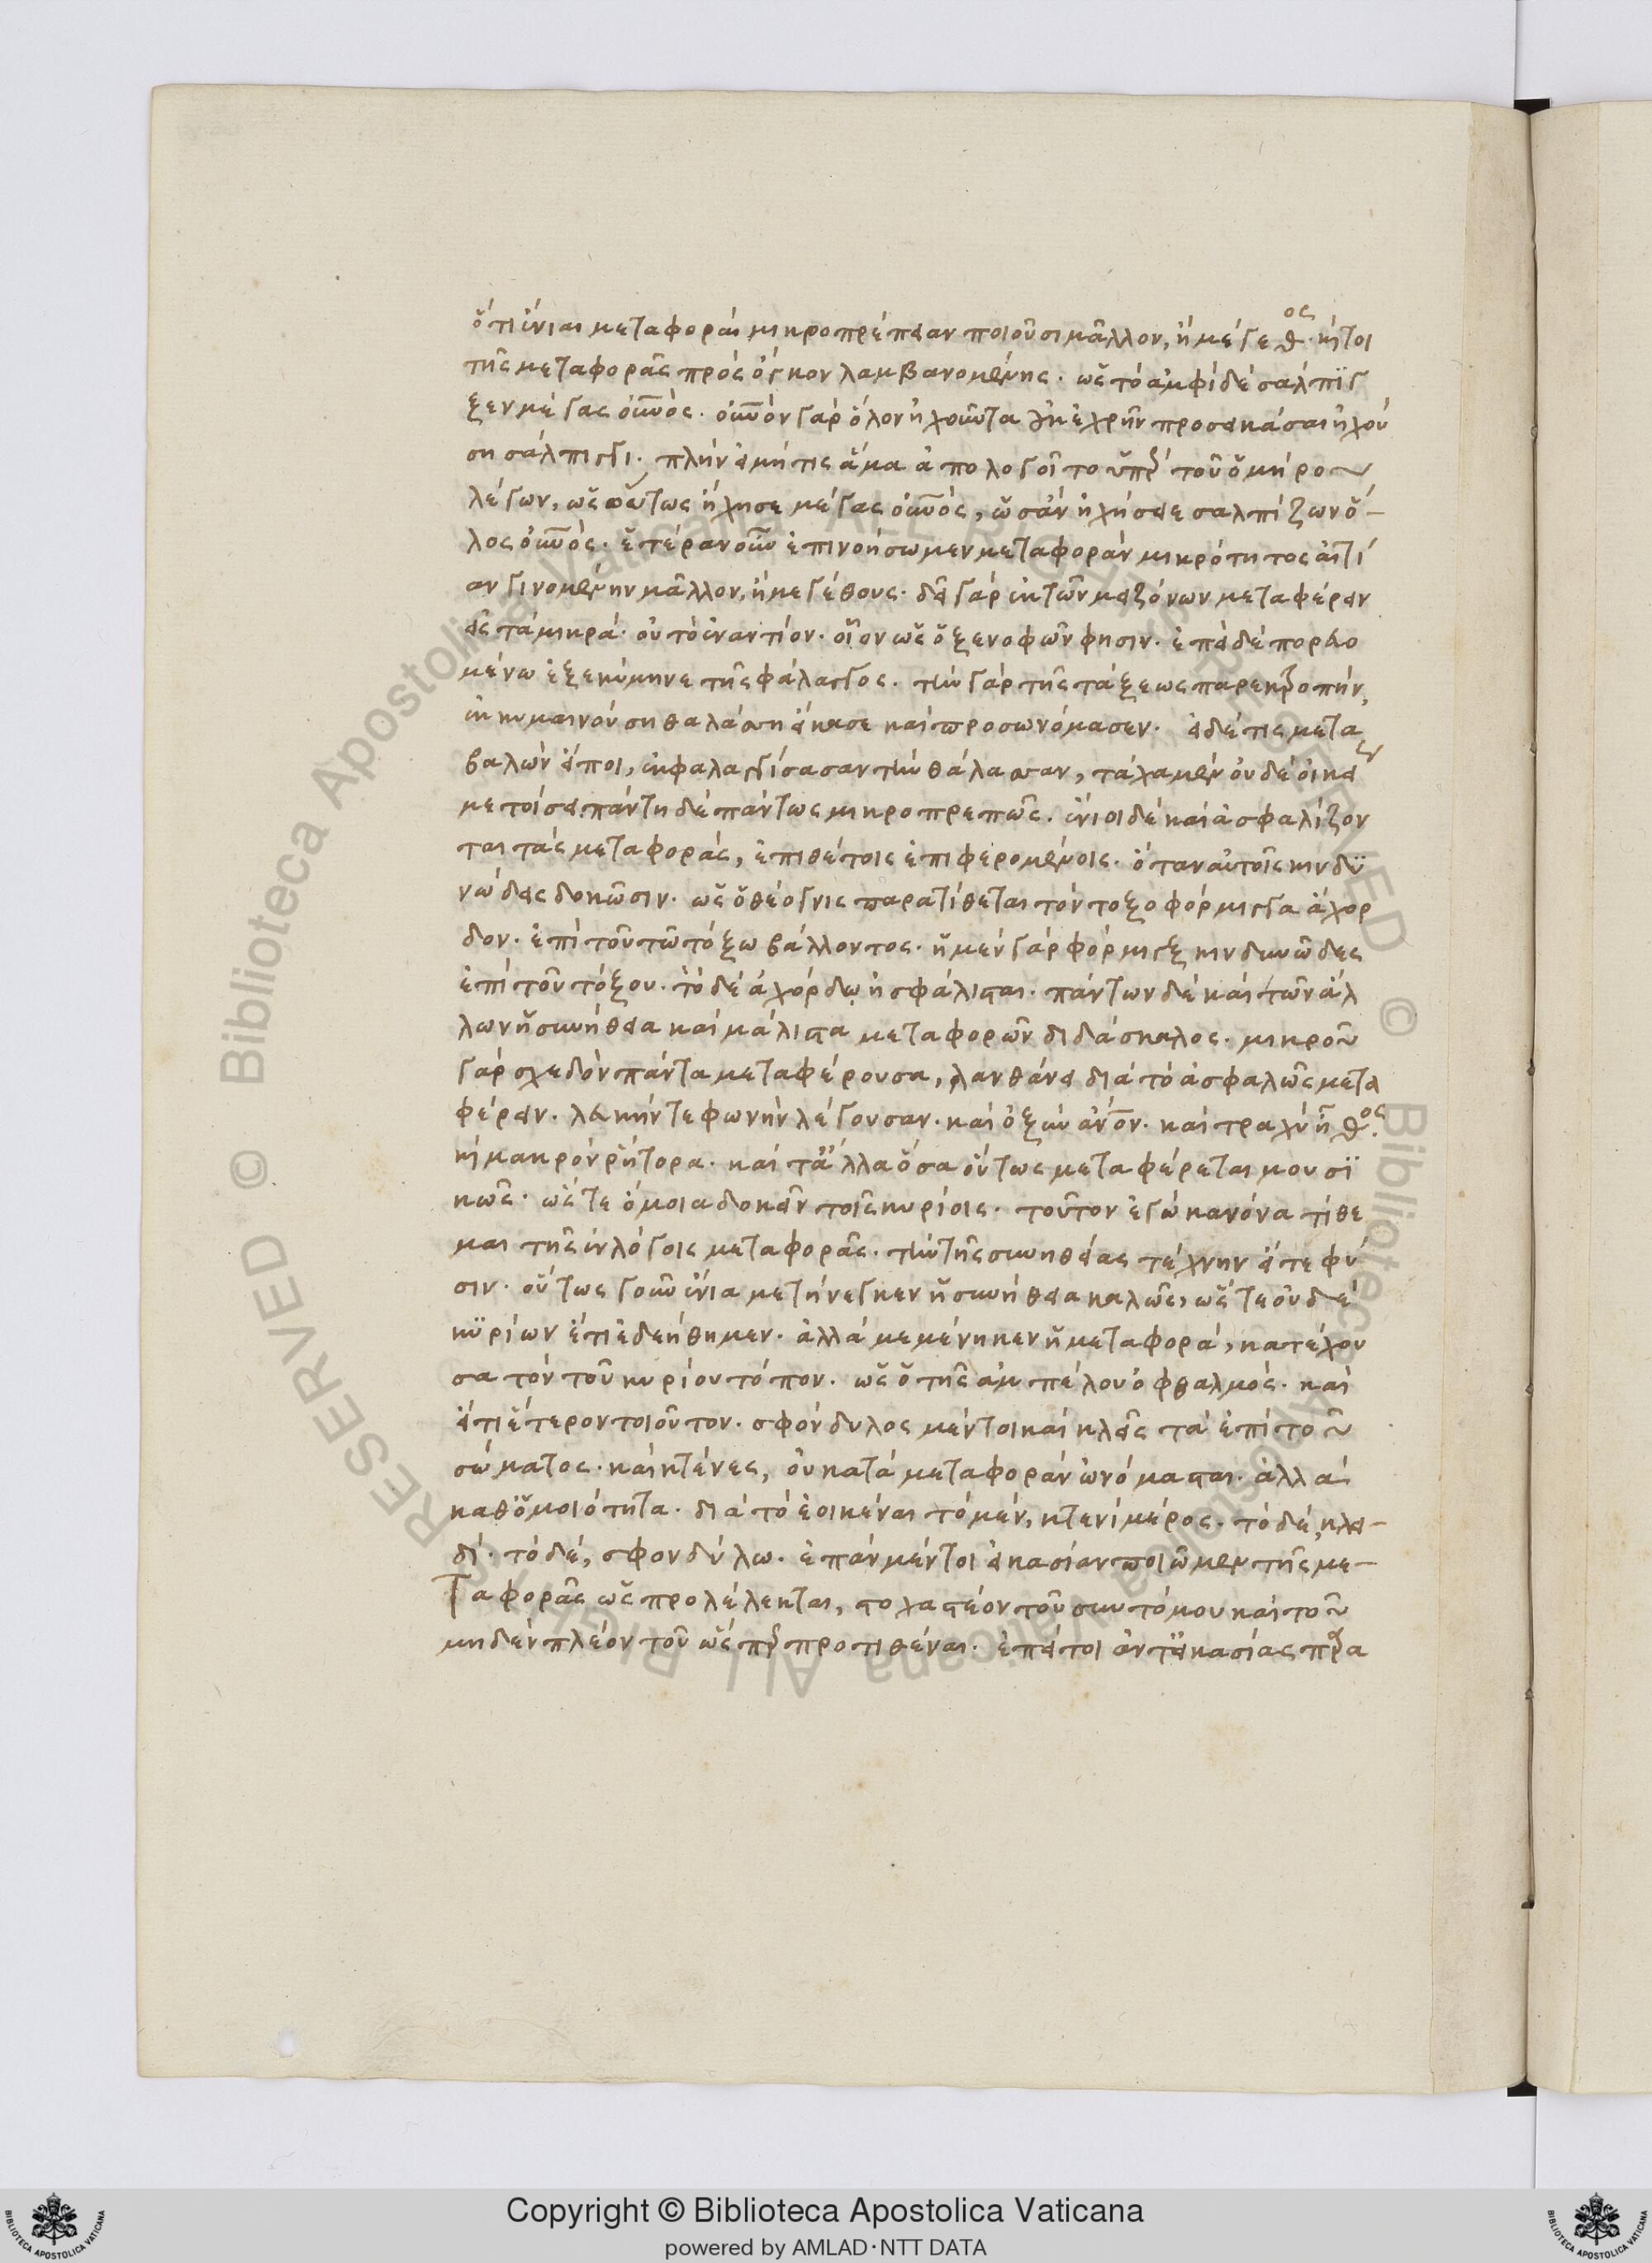 ὅτι ἔνιαι μεταφοραὶ μικροπρέπειαν ποιοῦσι μᾶλλον, ἢ μέγεθος. καίτοι
τῆς μεταφορᾶς πρὸς ὄγκον λαμβανομένης. ὡς τὸ ἀμφὶ δὲ σάλπιγ
ξεν μέγας οὐρανός. οὐρανὸν γὰρ ὅλον ἠχοῦντα οὐκ ἐχρῆν προσεικάσαι ἠχού
ση σάλπιγγι. πλὴν εἰ μή τις ἅμα ἀπολογοῖτο ὑπὲρ τοῦ ὁμήρου
λέγων, ὡς οὕτως ἤχησε μέγας οὐρανός, ὡς ἂν ἠχήσειε σαλπίζων ὅ-
λος οὐρανός. ἑτέραν οὖν ἐπινοήσωμεν μεταφορὰν μικρότητος αἰτί
αν γινομένην μᾶλλον, ἢ μεγέθους. δεῖ γὰρ ἐκ τῶν μειζόνων μεταφέρειν
εἰς τὰ μικρά. οὐ τὸ ἐναντίον. οἷον ὡς ὁ ξενοφῶν φησιν. ἐπεὶ δὲ πορευο
μένω ἐξεκύμηνε τῆς φάλαγγος. τὴν γὰρ τῆς τάξεως παρεκτροπήν,
ἐκκυμαινούση θαλάσση εἴκασε καὶ προσωνόμασεν. εἰ δέ τις μετα
βαλὼν εἴποι, ἐκφαλαγγίσασαν τὴν θάλασσαν, τάχα μὲν οὐδὲ οἰκεί
ως μετοίσει πάντη δὲ πάντως μικροπρεπῶς. ἔνιοι δὲ καὶ ἀσφαλίζον
ται τὰς μεταφοράς, ἐπιθέτοις ἐπιφερομένοις. ὅταν αὐτοῖς κινδυ
νώδεις δοκῶσιν. ὡς ὁ θέογνις παρατίθεται τὸν τοξο φόρμιγγα ἄχορ
δον. ἐπὶ τοῦ τῶ τόξω βάλλοντος. ἡ μὲν γὰρ φόρμιγξ κινδυνῶδες
ἐπὶ τοῦ τόξου. τὸ δὲ ἀχόρδω ἠσφάλισται. πάντων δὲ καὶ τῶν ἄλ
λων ἡ συνήθεια καὶ μάλιστα μεταφορῶν διδάσκαλος. μικροῦ
γὰρ σχεδὸν πάντα μεταφέρουσα, λανθάνει διὰ τὸ ἀσφαλῶς μετα
φέρειν. λευκήν τε φωνὴν λέγουσαν. καὶ ὀξὺν ἄνον. καὶ τραχὺ ἦθος.
καὶ μακρὸν ῥήτορα. καὶ τἄλλα ὅσα οὕτως μεταφέρεται μουσι
κῶς. ὥστε ὅμοια δοκεῖν τοῖς κυρίοις. τοῦτον ἐγὼ κανόνα τίθε
μαι τῆς ἐν λόγοις μεταφορᾶς. τὴν τῆς συνηθείας τέχνην εἴτε φύ
σιν. οὕτως γοῦν ἔνια μετήνεγκεν ἡ συνήθεια καλῶς, ὥστε οὐδὲ
κυρίων ἔτι ἐδεήθημεν. ἀλλὰ μεμένηκεν ἡ μεταφορά, κατέχου
σα τὸν τοῦ κυρίου τόπον. ὡς ὁ τῆς ἀμπέλου ὀφθαλμός. καὶ
εἴ τι ἕτερον τοιοῦτον. σφόνδυλος μέντοι καὶ κλεῖς τὰ ἐπὶ τοῦ
σώματος. καὶ κτένες, οὐ κατὰ μεταφορὰν ὠνόμασται. ἀλλὰ
καθ' ὁμοιότητα. διὰ τὸ ἐοικέναι τὸ μέν, κτενὶ μέρος. τὸ δέ, κλει-
δί. τὸ δέ, σφονδύλω. ἐπὰν μέντοι εἰκασίαν ποιῶμεν τῆς με-
ταφορᾶς ὡς προλέλεκται, στοχαστέον τοῦ συντόμου καὶ τοῦ
μηδὲν πλέον τοῦ ὥσπερ προτιθέναι. ἐπεί τοι ἀντ' εἰκασίας παρα